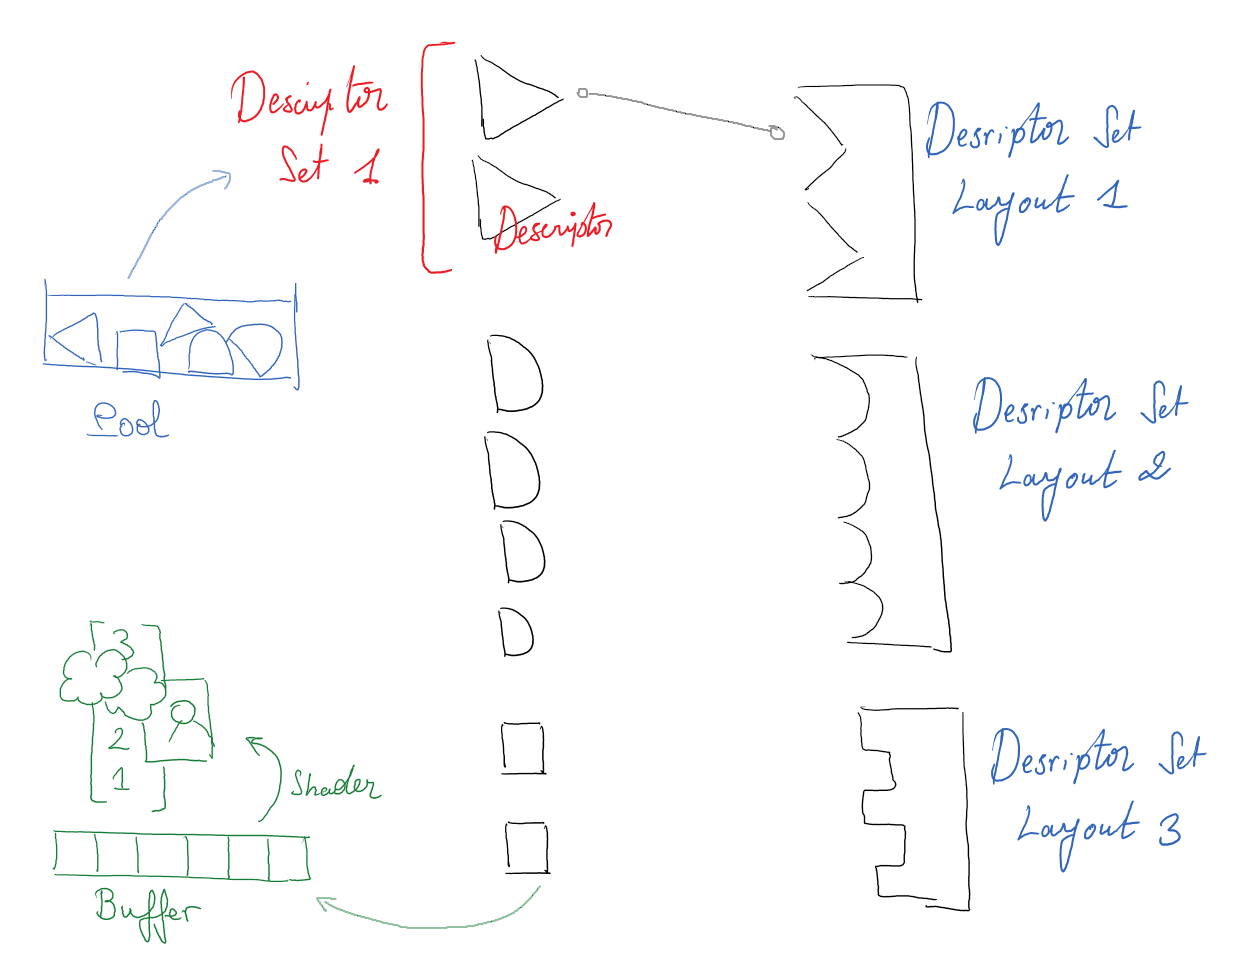 Descriptor
Set 1
Descriptor
Desriptor Set
Layout 1
Pool
Desriptor Set
Layout 2
3
2
1
Shader
Buffer
Desriptor Set
Layout 3